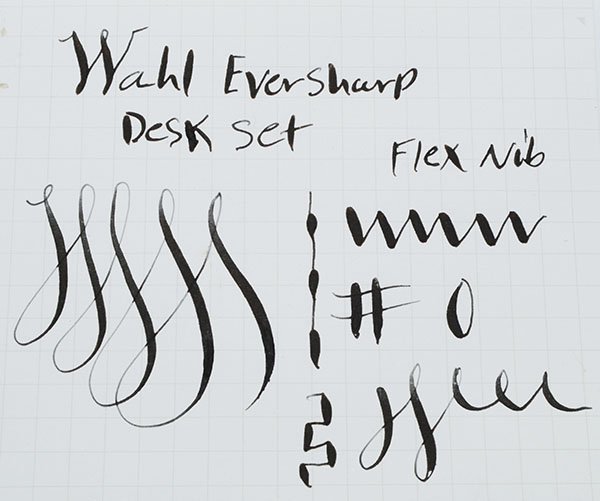 Wahl Eversharp
Desk Set
Flex Nib
# 0